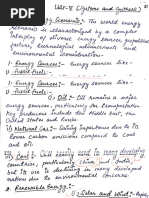 UNIT-5 (Systems and Synthesis) ①
Energy Scenario:- The world energy
scenario is characterized by a complex
interplay of diverse energy sources, geopolitical
factors, technological advancement and
environmental consideration:-
1) Energy Sources:-
i) Fossil fuels:-
1) Energy Sources:-
1) Fossil fuels:-
i) Oil:- Oil remains a major
energy sources, particularly for transportation.
Key producers include the Middle East, the
United States and Russia.
ii) Natural Gas:- Gaining importance due to its
lower carbon emissions compared to Coal
and oil.
iii) Coal:- Still widely used in many developed
countries, particularly China and India
but its use is declining in many developed
nations due to environmental concerns.
2. Renewable Energy:-
i) Solar and Wind:- Rapidly